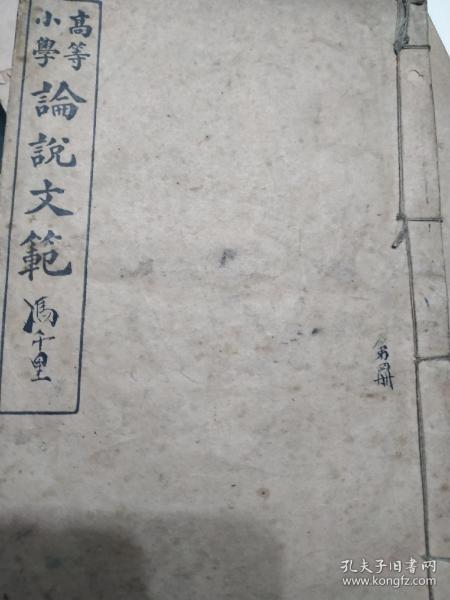 高等
小學
論說文範
馮千里
第四冊
孔夫子旧书网
www.kongfz.com